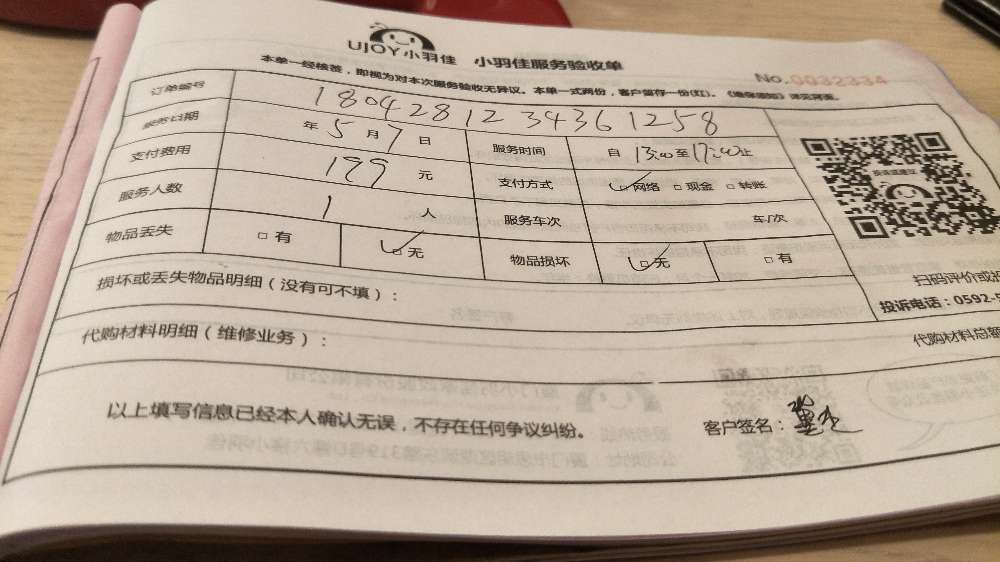 UJOY小羽佳 小羽佳服务验收单
No.0032334
本单一经核签，即视为对本次服务验收无异议。本单一式两份，客户留存一份(红)。《维保须知》详见背面。
订单编号 180428123436 1258
服务日期 年 5 月 7 日 服务时间 自 13:00 至 17:00 止
支付费用 199 元 支付方式 ☑网络 □现金 □转账
服务人数 1 人 服务车次 车/次
物品丢失 □有 ☑无 物品损坏 ☑无 □有
损坏或丢失物品明细（没有可不填）：
扫码评价或投
投诉电话：0592-5
代购材料明细（维修业务）：
代购材料总额
以上填写信息已经本人确认无误，不存在任何争议纠纷。 客户签名：